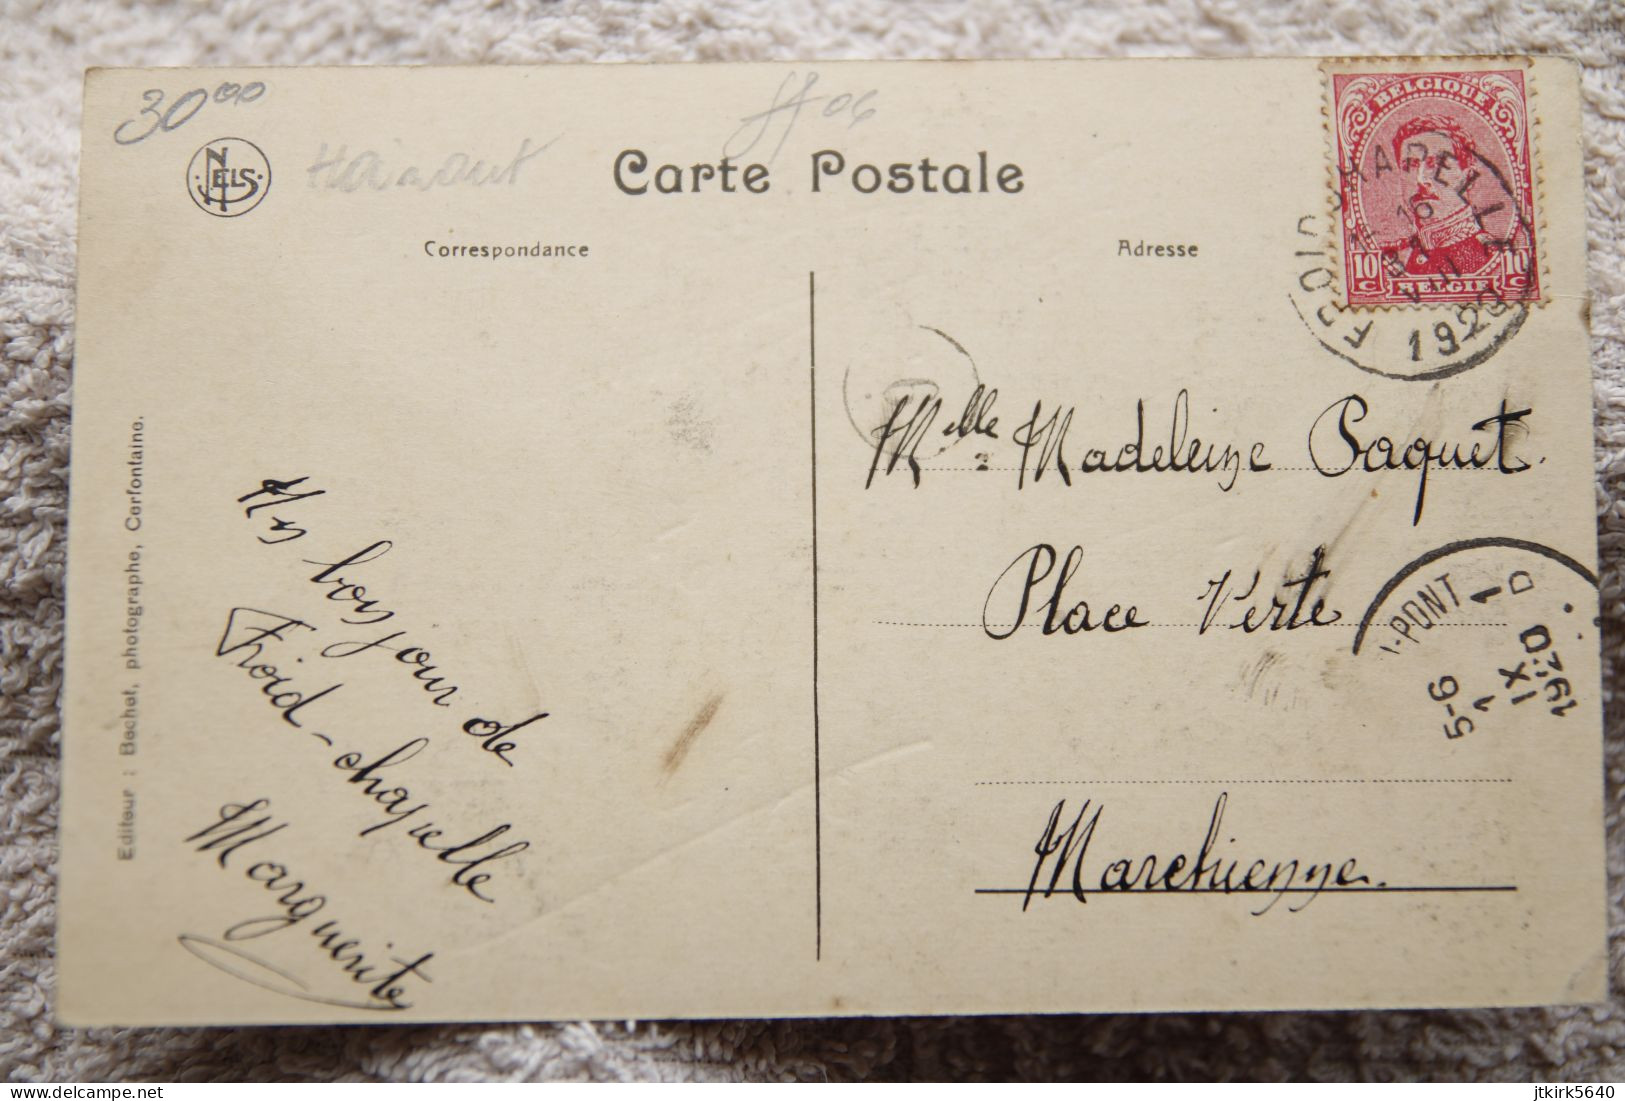 30 00
NELS
Hainaut
Carte Postale
Correspondance
Adresse
BELGIQUE
10 C
10 C
BELGIE
FROIDCHAPELLE
16
31
VIII
1920
Mlle Madeleine Paquet.
Place Verte
Marchienne.
-PONT
1 D
5-6
1
IX
1920
Un bonjour de
Froid-chapelle
Marguerite
Editeur : Bechet, photographe, Cerfontaine.
delcampe.net
jtkirk5640